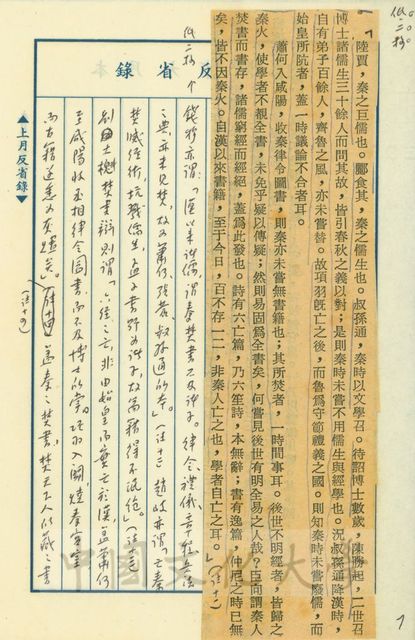 低二格
陸賈，秦之巨儒也。酈食其，秦之儒生也。叔孫通，秦時以文學召。待詔博士數歲，陳勝起，二世召
博士諸儒生三十餘人而問其故，皆引春秋之義以對；是則秦時未嘗不用儒生與經學也。況叔孫通降漢時，
自有弟子百餘人，齊魯之風，亦未嘗替。故項羽旣亡之後，而魯爲守節禮義之國。則知秦時未嘗廢儒，而
始皇所阬者，蓋一時議論不合者耳。
蕭何入咸陽，收秦律令圖書，則秦亦未嘗無書籍也；其所焚者，一時間事耳。後世不明經者，皆歸之
秦火，使學者不覩全書，未免乎疑以傳疑；然則易固爲全書矣，何嘗見後世有明全易之人哉？臣向謂秦人
焚書而書存，諸儒窮經而經絕，蓋爲此發也。詩有六亡篇，乃六笙詩，本無辭；書有逸篇，仲尼之時已無
矣，皆不因秦火。自漢以來書籍，至于今日，百不存一二，非秦人亡之也，學者自亡之耳。(註十一)
反省錄
低二格
亦謂「秦焚書不及諸子。律令、禮儀
亦未見焚，故蕭何、張蒼、叔孫通
焚滅經術，坑戮儒生，孟子書號諸子，故篇籍得不泯絕。」
焚書辯則謂「六經之亡，非由始皇而實亡於漢，蓋蕭何
至咸陽收丞相律令圖書，而不及博士所掌，項羽入關，燒秦宮室
而古籍遂悉為灰燼矣。」蓋秦之焚書，焚天下人所藏之書
▲上月反省錄▼
中國文化大學
7